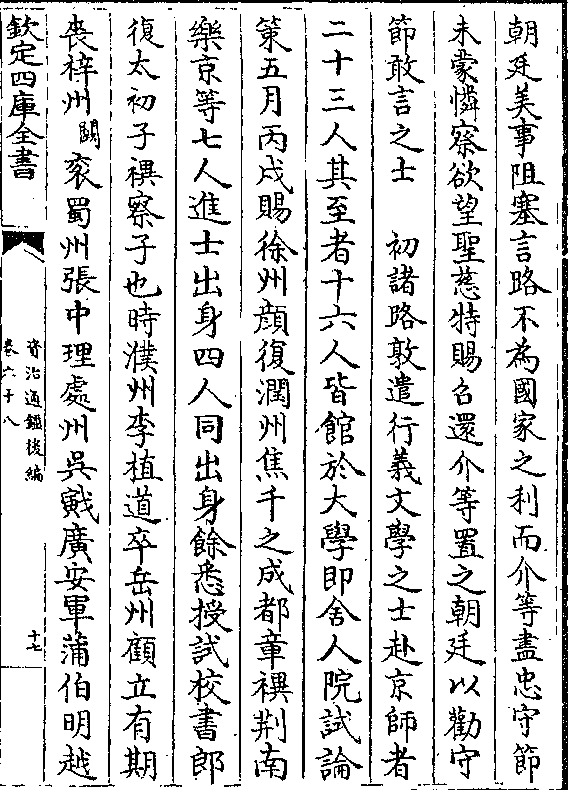 朝廷美事阻塞言路不為國家之利而介等盡忠守節
未蒙憐察欲望聖慈特賜召還介等置之朝廷以勸守
節敢言之士　初諸路敦遣行義文學之士赴京師者
二十三人其至者十六人皆館於大學即舍人院試論
策五月丙戌賜徐州顔復潤州焦千之成都章禩荆南
樂京等七人進士出身四人同出身餘悉授試校書郎
復太初子禩察子也時濮州李植道卒岳州顧立有期
喪梓州闕衮蜀州張中理處州吳戭廣安軍蒲伯明越
欽定四庫全書
資治通鑑後編
卷六十八
十七